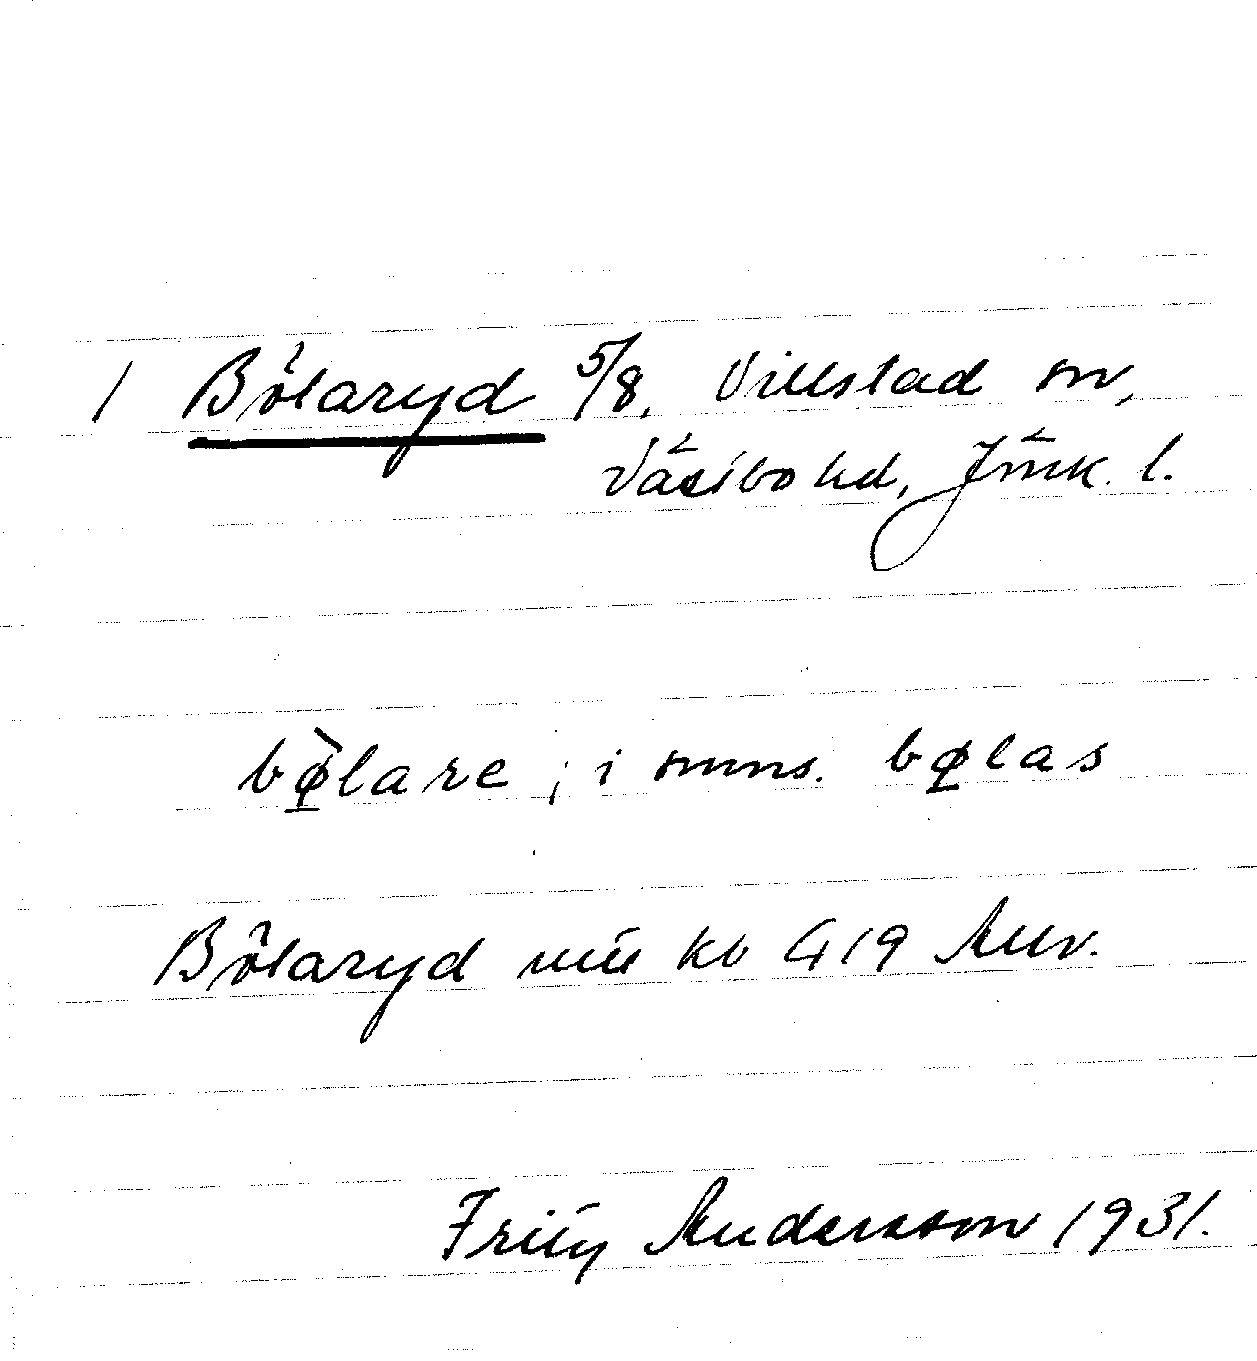 1 Bölaryd 5/8, Villstad sn,
Västbo hd, Jönk. l.
bø̀lare ; i smns. bølas
Bölaryd kb 419 Anv.
Andersson 1931.